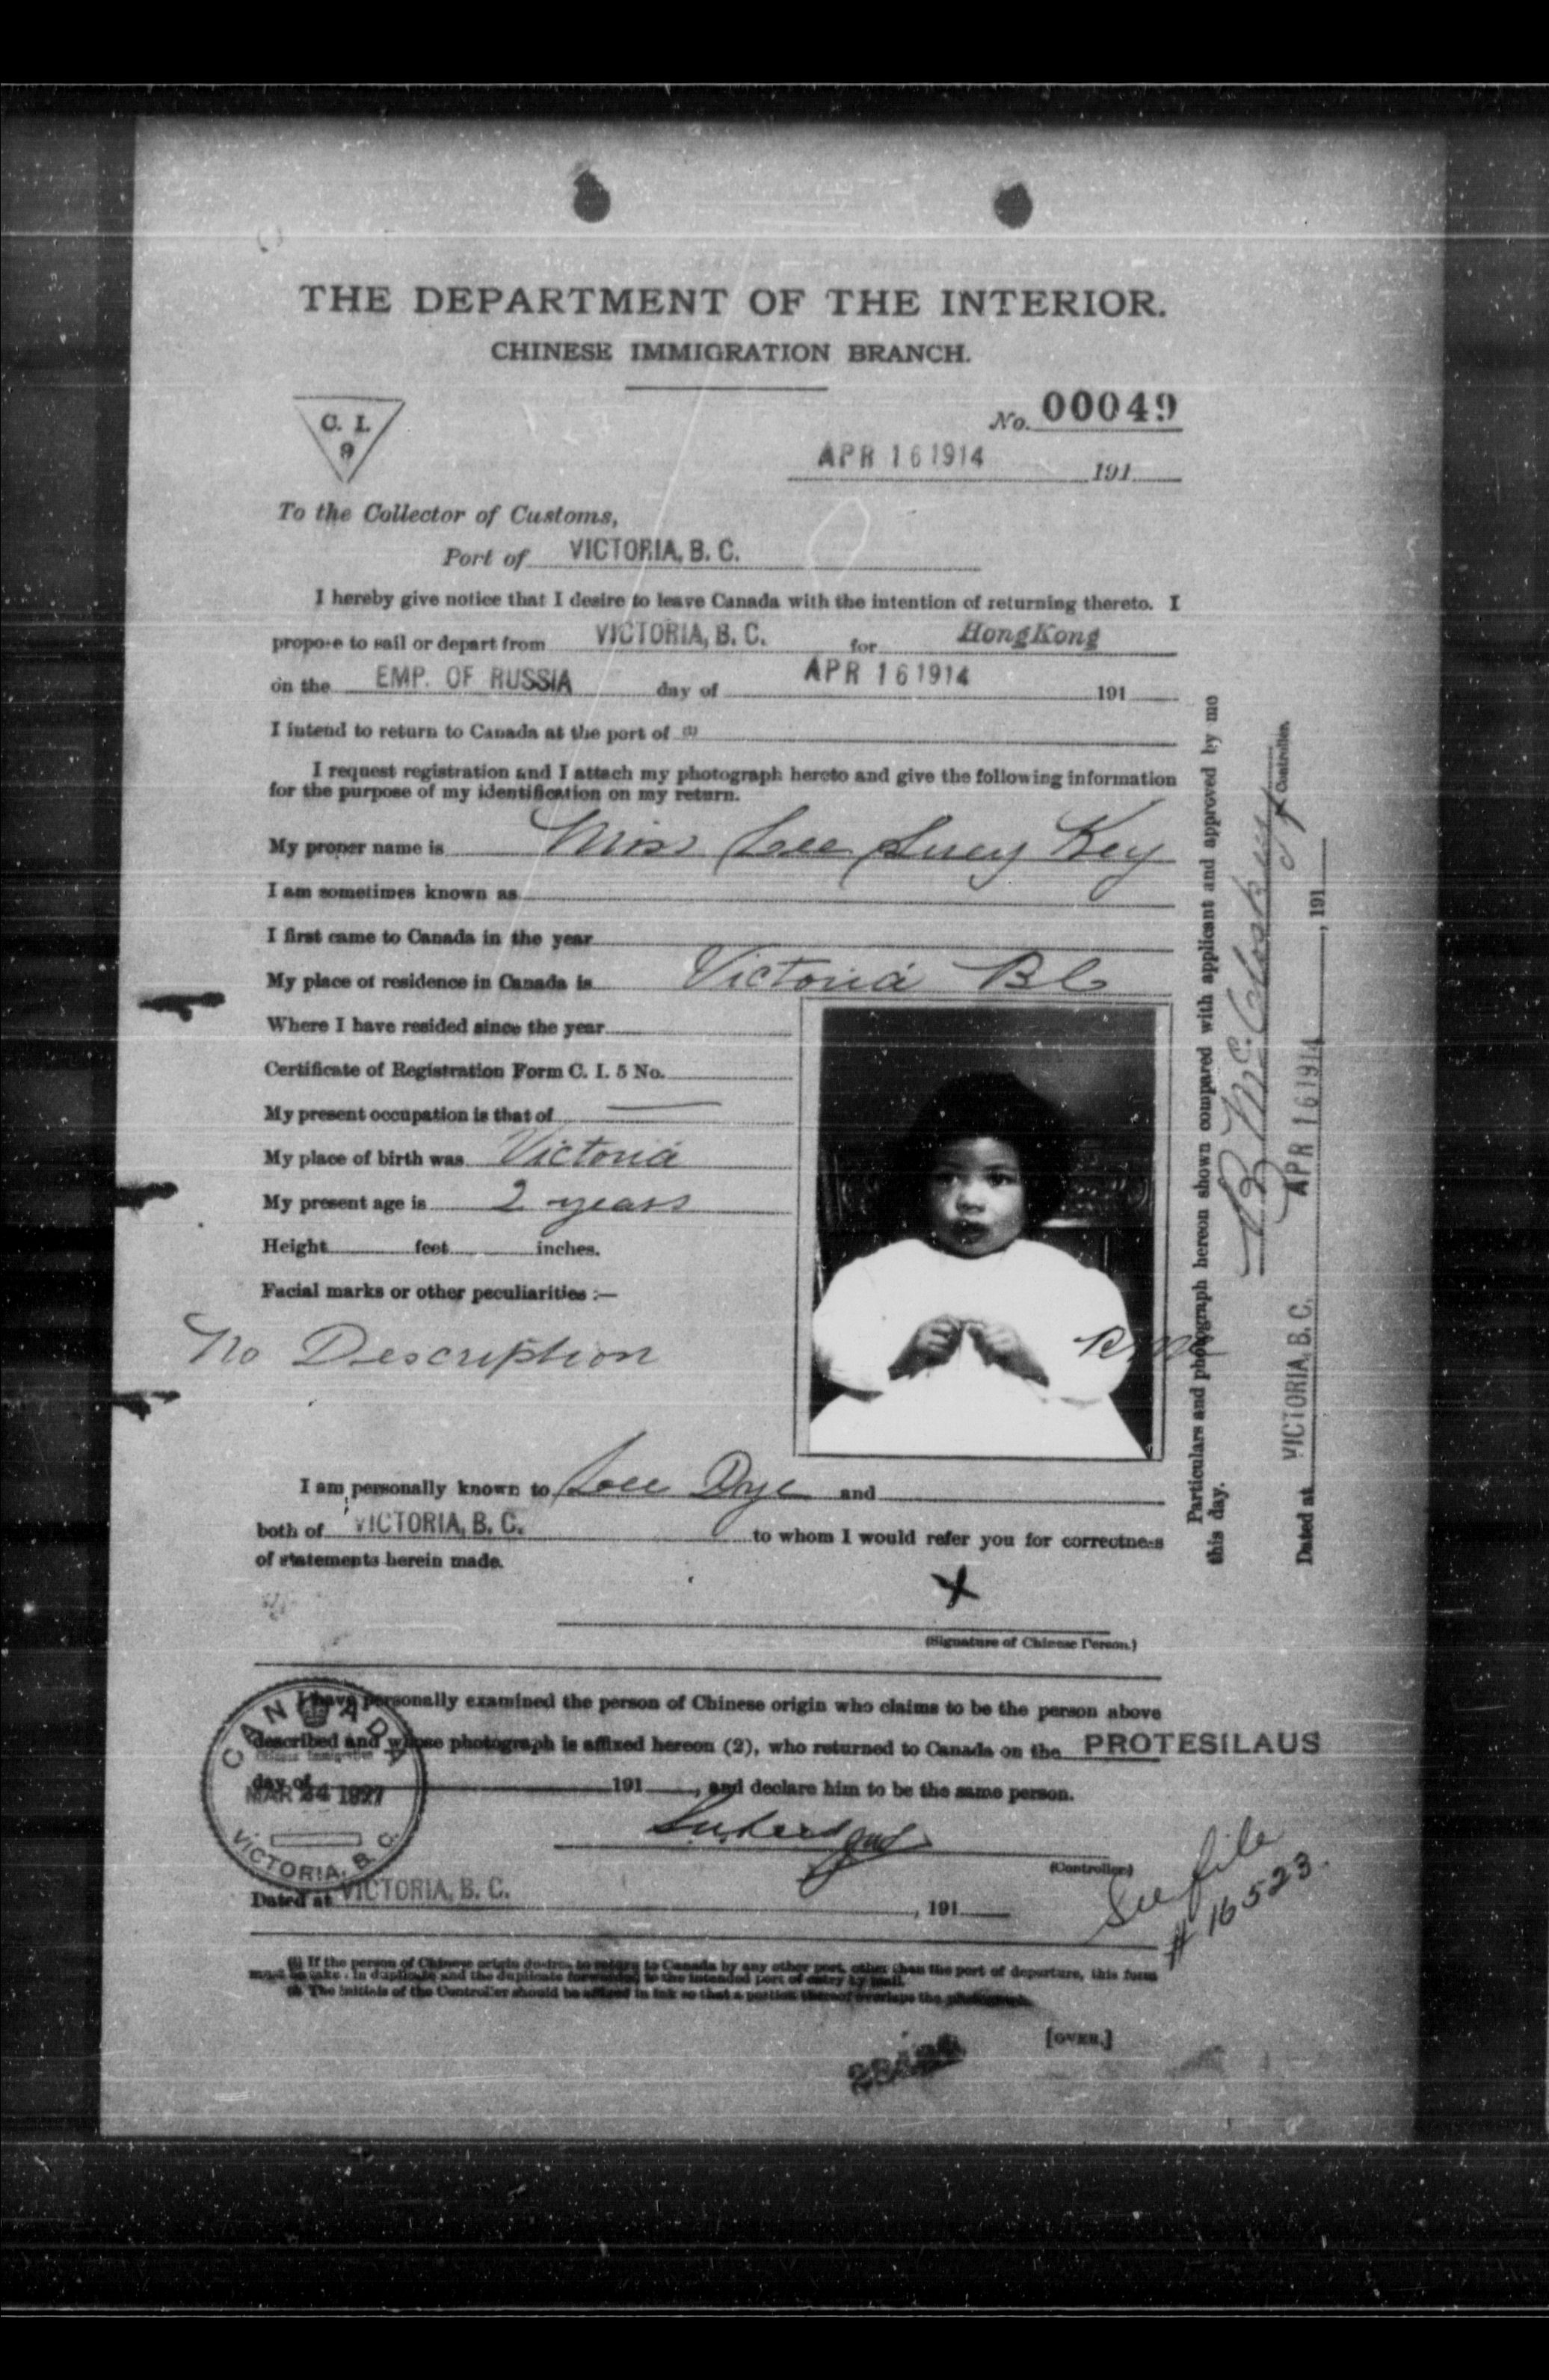 THE DEPARTMENT OF THE INTERIOR.
CHINESE IMMIGRATION BRANCH.
C. I.
9
No. 00049
APR 16 1914 191
To the Collector of Customs,
Port of VICTORIA, B. C.
I hereby give notice that I desire to leave Canada with the intention of returning thereto. I
propose to sail or depart from VICTORIA, B. C. for HongKong
on the EMP. OF RUSSIA day of APR 16 1914 191
I intend to return to Canada at the port of (1)
I request registration and I attach my photograph hereto and give the following information
for the purpose of my identification on my return.
My proper name is Miss Lee Suey Key
I am sometimes known as
I first came to Canada in the year
My place of residence in Canada is Victoria BC
Where I have resided since the year
Certificate of Registration Form C. I. 5 No.
My present occupation is that of
My place of birth was Victoria
My present age is 2 years
Height feet inches.
Facial marks or other peculiarities :—
No Description
I am personally known to Lee Dye and
both of VICTORIA, B. C. to whom I would refer you for correctness
of statements herein made.
X
(Signature of Chinese Person.)
I have personally examined the person of Chinese origin who claims to be the person above
described and whose photograph is affixed hereon (2), who returned to Canada on the PROTESILAUS
day of 191 , and declare him to be the same person.
CANADA
MAR 24 1927
VICTORIA, B. C.
(Controller)
Dated at VICTORIA, B. C. , 191
See file
# 16523
(1) If the person of Chinese origin desires to return to Canada by any other port, other than the port of departure, this form
must be made in duplicate and the duplicate forwarded to the intended port of entry by mail.
(2) The initials of the Controller should be affixed in ink so that a portion thereof overlaps the photograph.
[OVER.]
Particulars and photograph hereon shown compared with applicant and approved by me
this day.
McCloskey
Controller.
Dated at VICTORIA, B. C. APR 16 1914 , 191